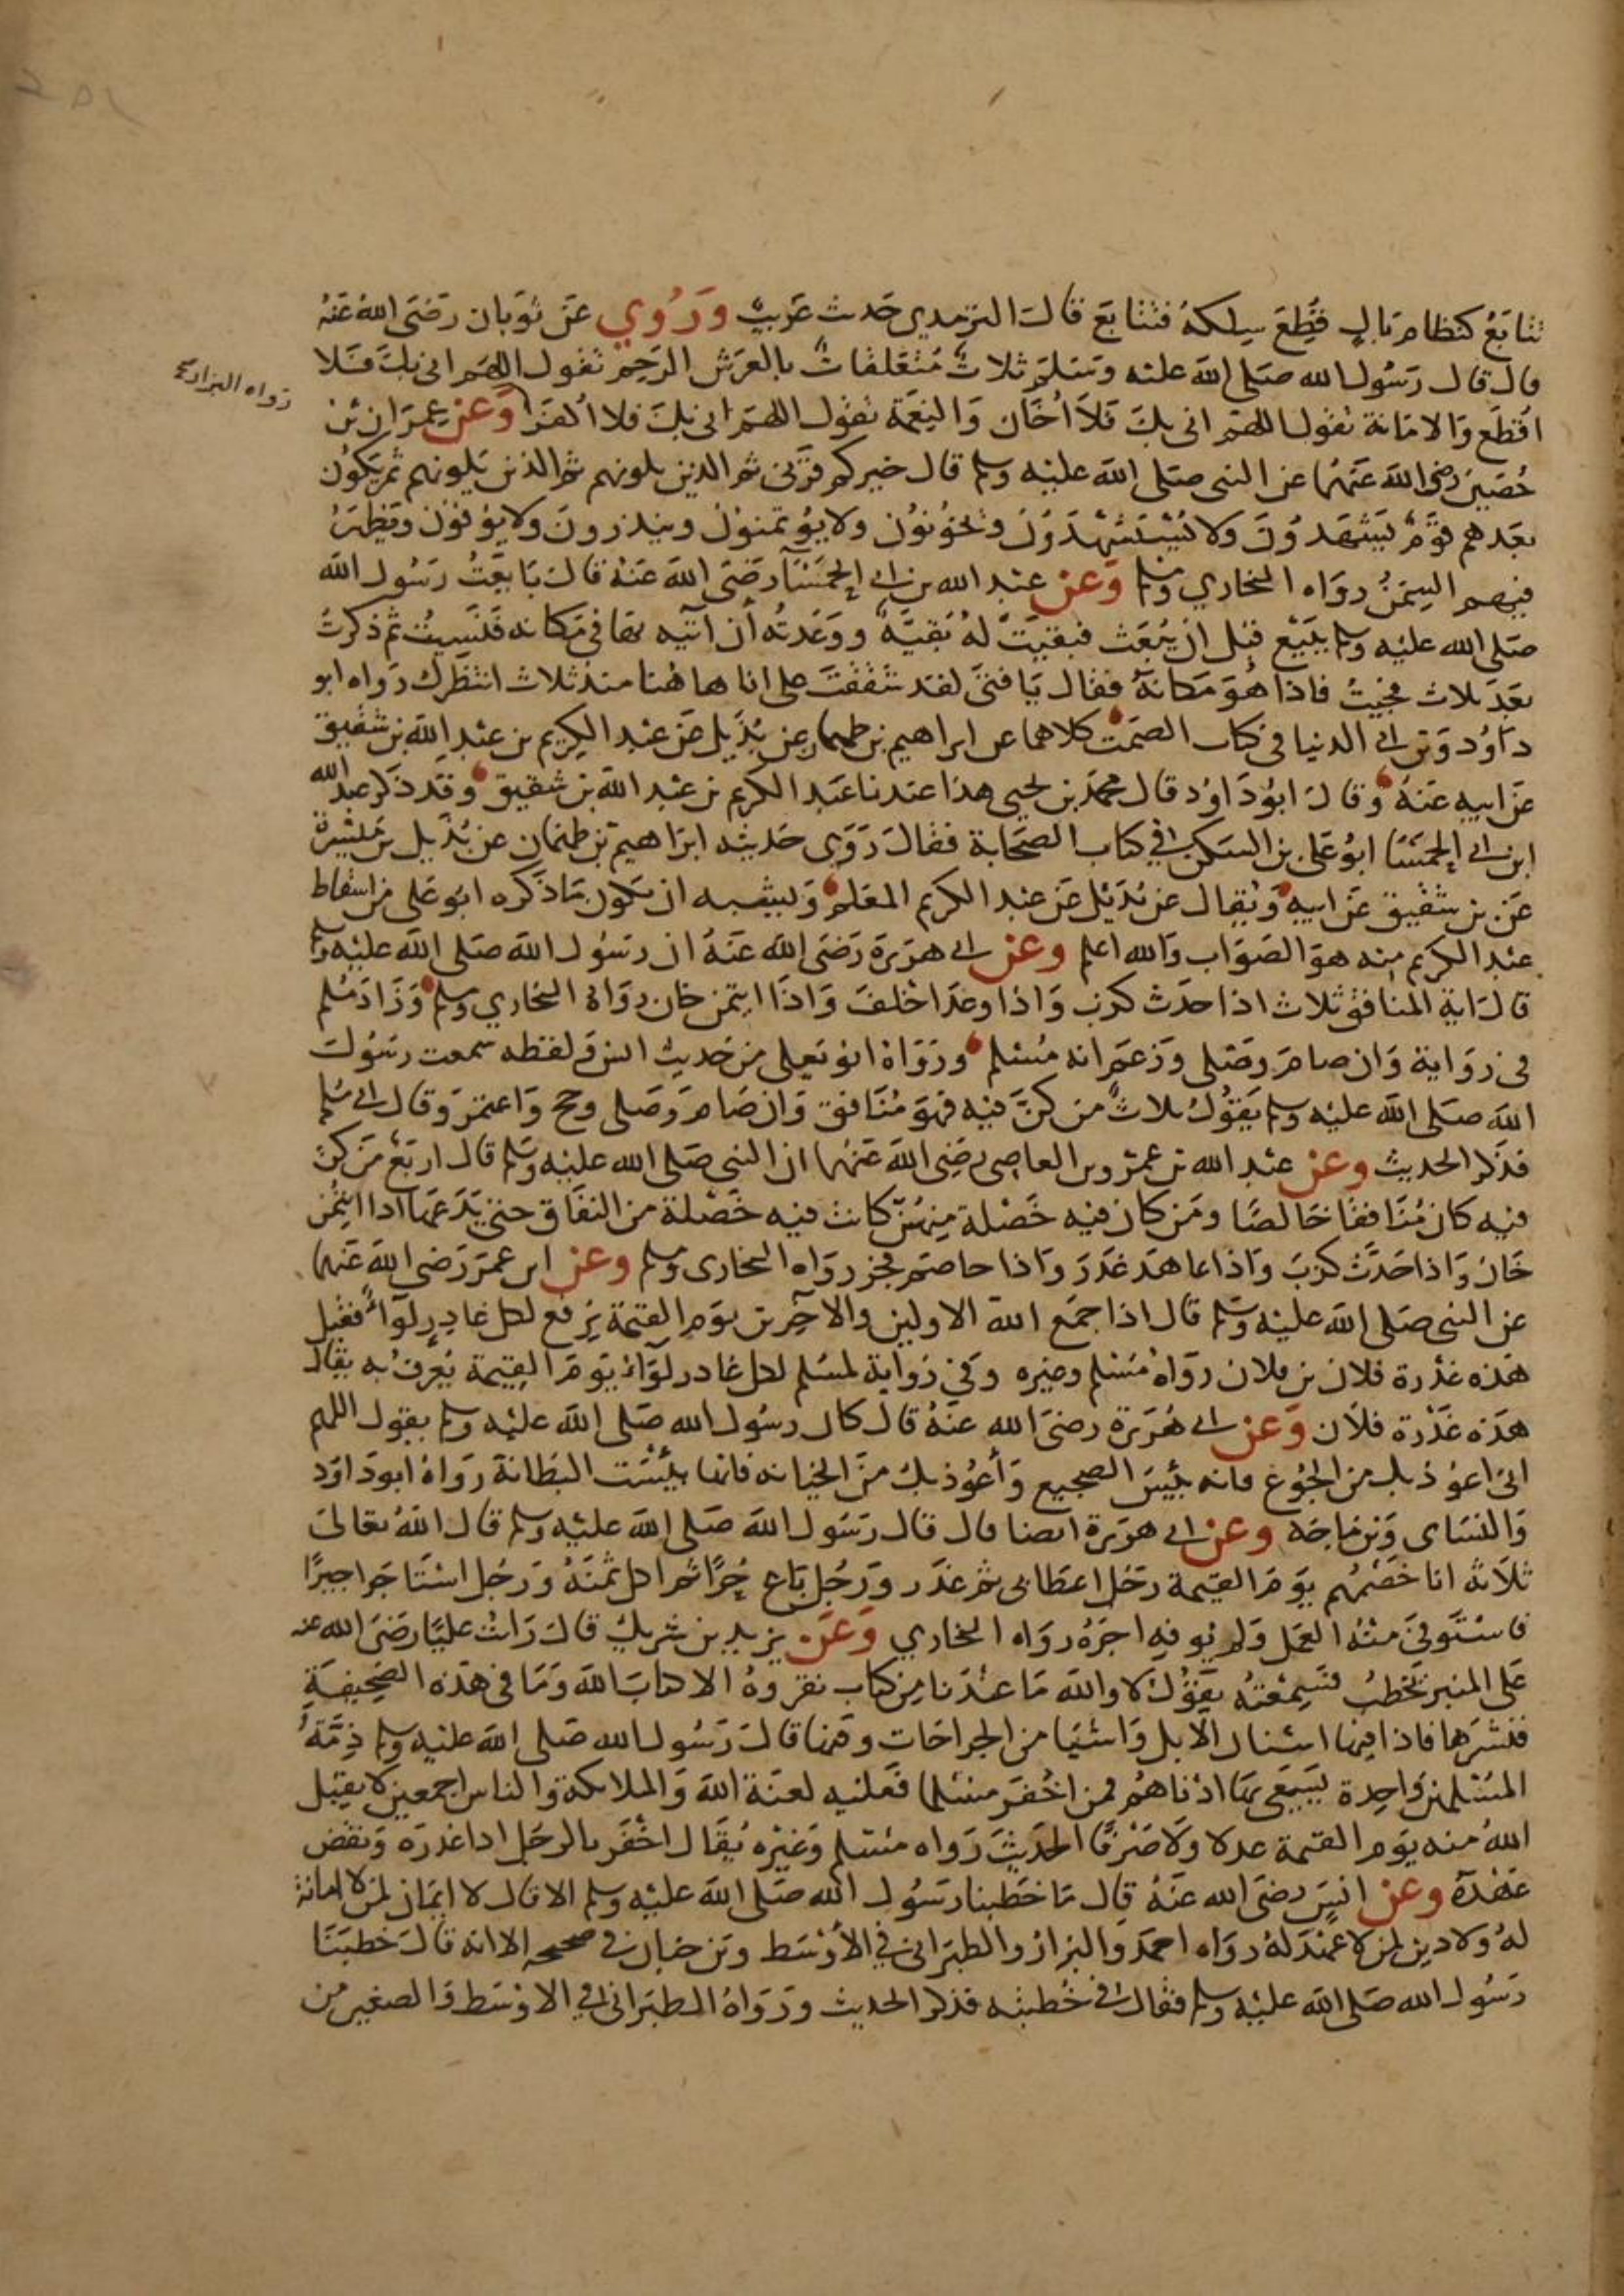 تتابع كنظام بال قطع سلكه فتتابع قال الترمذي حديث غريب وروي عن ثوبان رضي الله عنه
قال قال رسول الله صلى الله عليه وسلم ثلاث متعلقات بالعرش الرحم تقول اللهم اني بك فلا
اقطع والامانة تقول اللهم اني بك فلا اخان والنعمة تقول اللهم اني بك فلا اكفر وعن عمران بن
رواه البزار
حصين رضي الله عنهما عن النبي صلى الله عليه وسلم قال خيركم قرني ثم الذين يلونهم ثم الذين يلونهم ثم يكون
بعدهم قوم يشهدون ولا يستشهدون ويخونون ولا يؤتمنون وينذرون ولا يوفون ويظهر
فيهم السمن رواه البخاري ومسلم وعن عبد الله بن ابي الحمساء رضي الله عنه قال بايعت رسول الله
صلى الله عليه وسلم ببيع قبل ان يبعث فبقيت له بقية ووعدته أن آتيه بها في مكانه فنسيت ثم ذكرت
بعد ثلاث فجيت فاذا هو مكانه فقال يا فتى لقد شققت علي انا هاهنا منذ ثلاث انتظرك رواه ابو
داود وبن ابي الدنيا في كتاب الصمت كلاهما عن ابراهيم بن طهمان عن بديل عن عبد الكريم بن عبد الله بن شقيق
عن ابيه عنه وقال ابو داود قال محمد بن يحيى هذا عندنا عبد الكريم بن عبد الله بن شقيق وقد ذكر عبد الله
ابن ابي الحمسا ابو علي بن السكن في كتاب الصحابة فقال روى حديثه ابراهيم بن طهمان عن بديل بن ميسرة
عن بن شقيق عن ابيه ويقال عن بديل عن عبد الكريم المعلم ويشبه ان يكون ما ذكره ابو علي من اسقاط
عبد الكريم منه هو الصواب والله اعلم وعن ابي هريرة رضي الله عنه ان رسول الله صلى الله عليه وسلم
قال اية المنافق ثلاث اذا حدث كذب واذا وعد اخلف واذا ايتمن خان رواه البخاري ومسلم وزاد مسلم
في رواية وان صام وصلى وزعم انه مسلم ورواه ابو يعلى من حديث انس ولفظه سمعت رسول
الله صلى الله عليه وسلم يقول ثلاث من كن فيه فهو منافق وان صام وصلى وحج واعتمر وقال اني مسلم
فذكر الحديث وعن عبد الله بن عمرو بن العاصي رضي الله عنهما ان النبي صلى الله عليه وسلم قال اربع من كن
فيه كان منافقا خالصا ومن كان فيه خصلة منهن كانت فيه خصلة من النفاق حتى يدعها اذا ايتمن
خان واذا حدث كذب واذا عاهد غدر واذا خاصم فجر رواه البخاري ومسلم وعن ابن عمر رضي الله عنهما
عن النبي صلى الله عليه وسلم قال اذا جمع الله الاولين والاخرين يوم القيمة يرفع لكل غادر لواء فقيل
هذه غدرة فلان بن فلان رواه مسلم وغيره وفي رواية لمسلم لكل غادر لواء يوم القيمة يعرف به يقال
هذه غدرة فلان وعن ابي هريرة رضي الله عنه قال كان رسول الله صلى الله عليه وسلم يقول اللهم
اني اعوذ بك من الجوع فانه بئيس الضجيع وأعوذ بك من الخيانه فانها بئست البطانة رواه ابو داود
والنساي وبن ماجه وعن ابي هريرة ايضا قال قال رسول الله صلى الله عليه وسلم قال الله تعالى
ثلاثة انا خصمهم يوم القيمة رجل اعطا بي ثم غدر ورجل باع حرا ثم اكل ثمنه ورجل استاجر اجيرا
فاستوفى منه العمل ولم يوفه اجره رواه البخاري وعن يزيد بن شريك قال رايت عليا رضي الله عنه
على المنبر يخطب فسمعته يقول لا والله ما عندنا من كتاب نقروه الا كتاب الله وما في هذه الصحيفة
فنشرها فاذا فيها اسنان الابل واشيا من الجراحات وفيها قال رسول الله صلى الله عليه وسلم ذمة
المسلمين واحدة يسعى بها ادناهم فمن اخفر مسلما فعليه لعنة الله والملائكة والناس اجمعين لا يقبل
الله منه يوم القيمة عدلا ولا صرفا الحديث رواه مسلم وغيره يقال اخفر بالرجل اذا غدره ونقض
عهده وعن انس رضي الله عنه قال ما خطبنا رسول الله صلى الله عليه وسلم الا قال لا ايمان لمن لا امانة
له ولا دين لمن لا عهد له رواه احمد والبزار والطبراني في الأوسط وبن حبان في صحيحه الا انه قال خطبنا
رسول الله صلى الله عليه وسلم فقال في خطبته فذكر الحديث ورواه الطبراني في الاوسط والصغير من